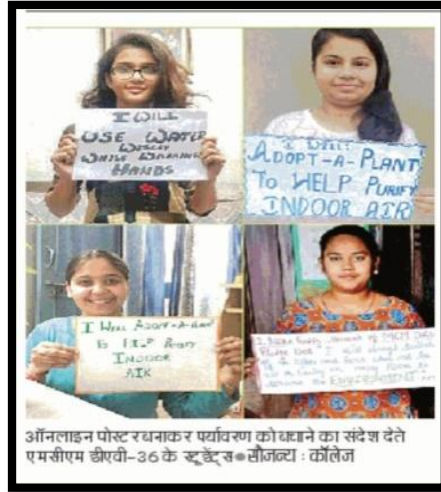 I WILL
USE WATER
WISELY
WHILE WASHING
HANDS
I WILL
ADOPT-A-PLANT
TO HELP PURIFY
INDOOR AIR
I WILL ADOPT-A-PLANT
TO HELP PURIFY
INDOOR
AIR
ऑनलाइन पोस्टर बनाकर पर्यावरण को बचाने का संदेश देते
एमसीएम डीएवी-36 के स्टूडेंट्स ● सौजन्य : कॉलेज